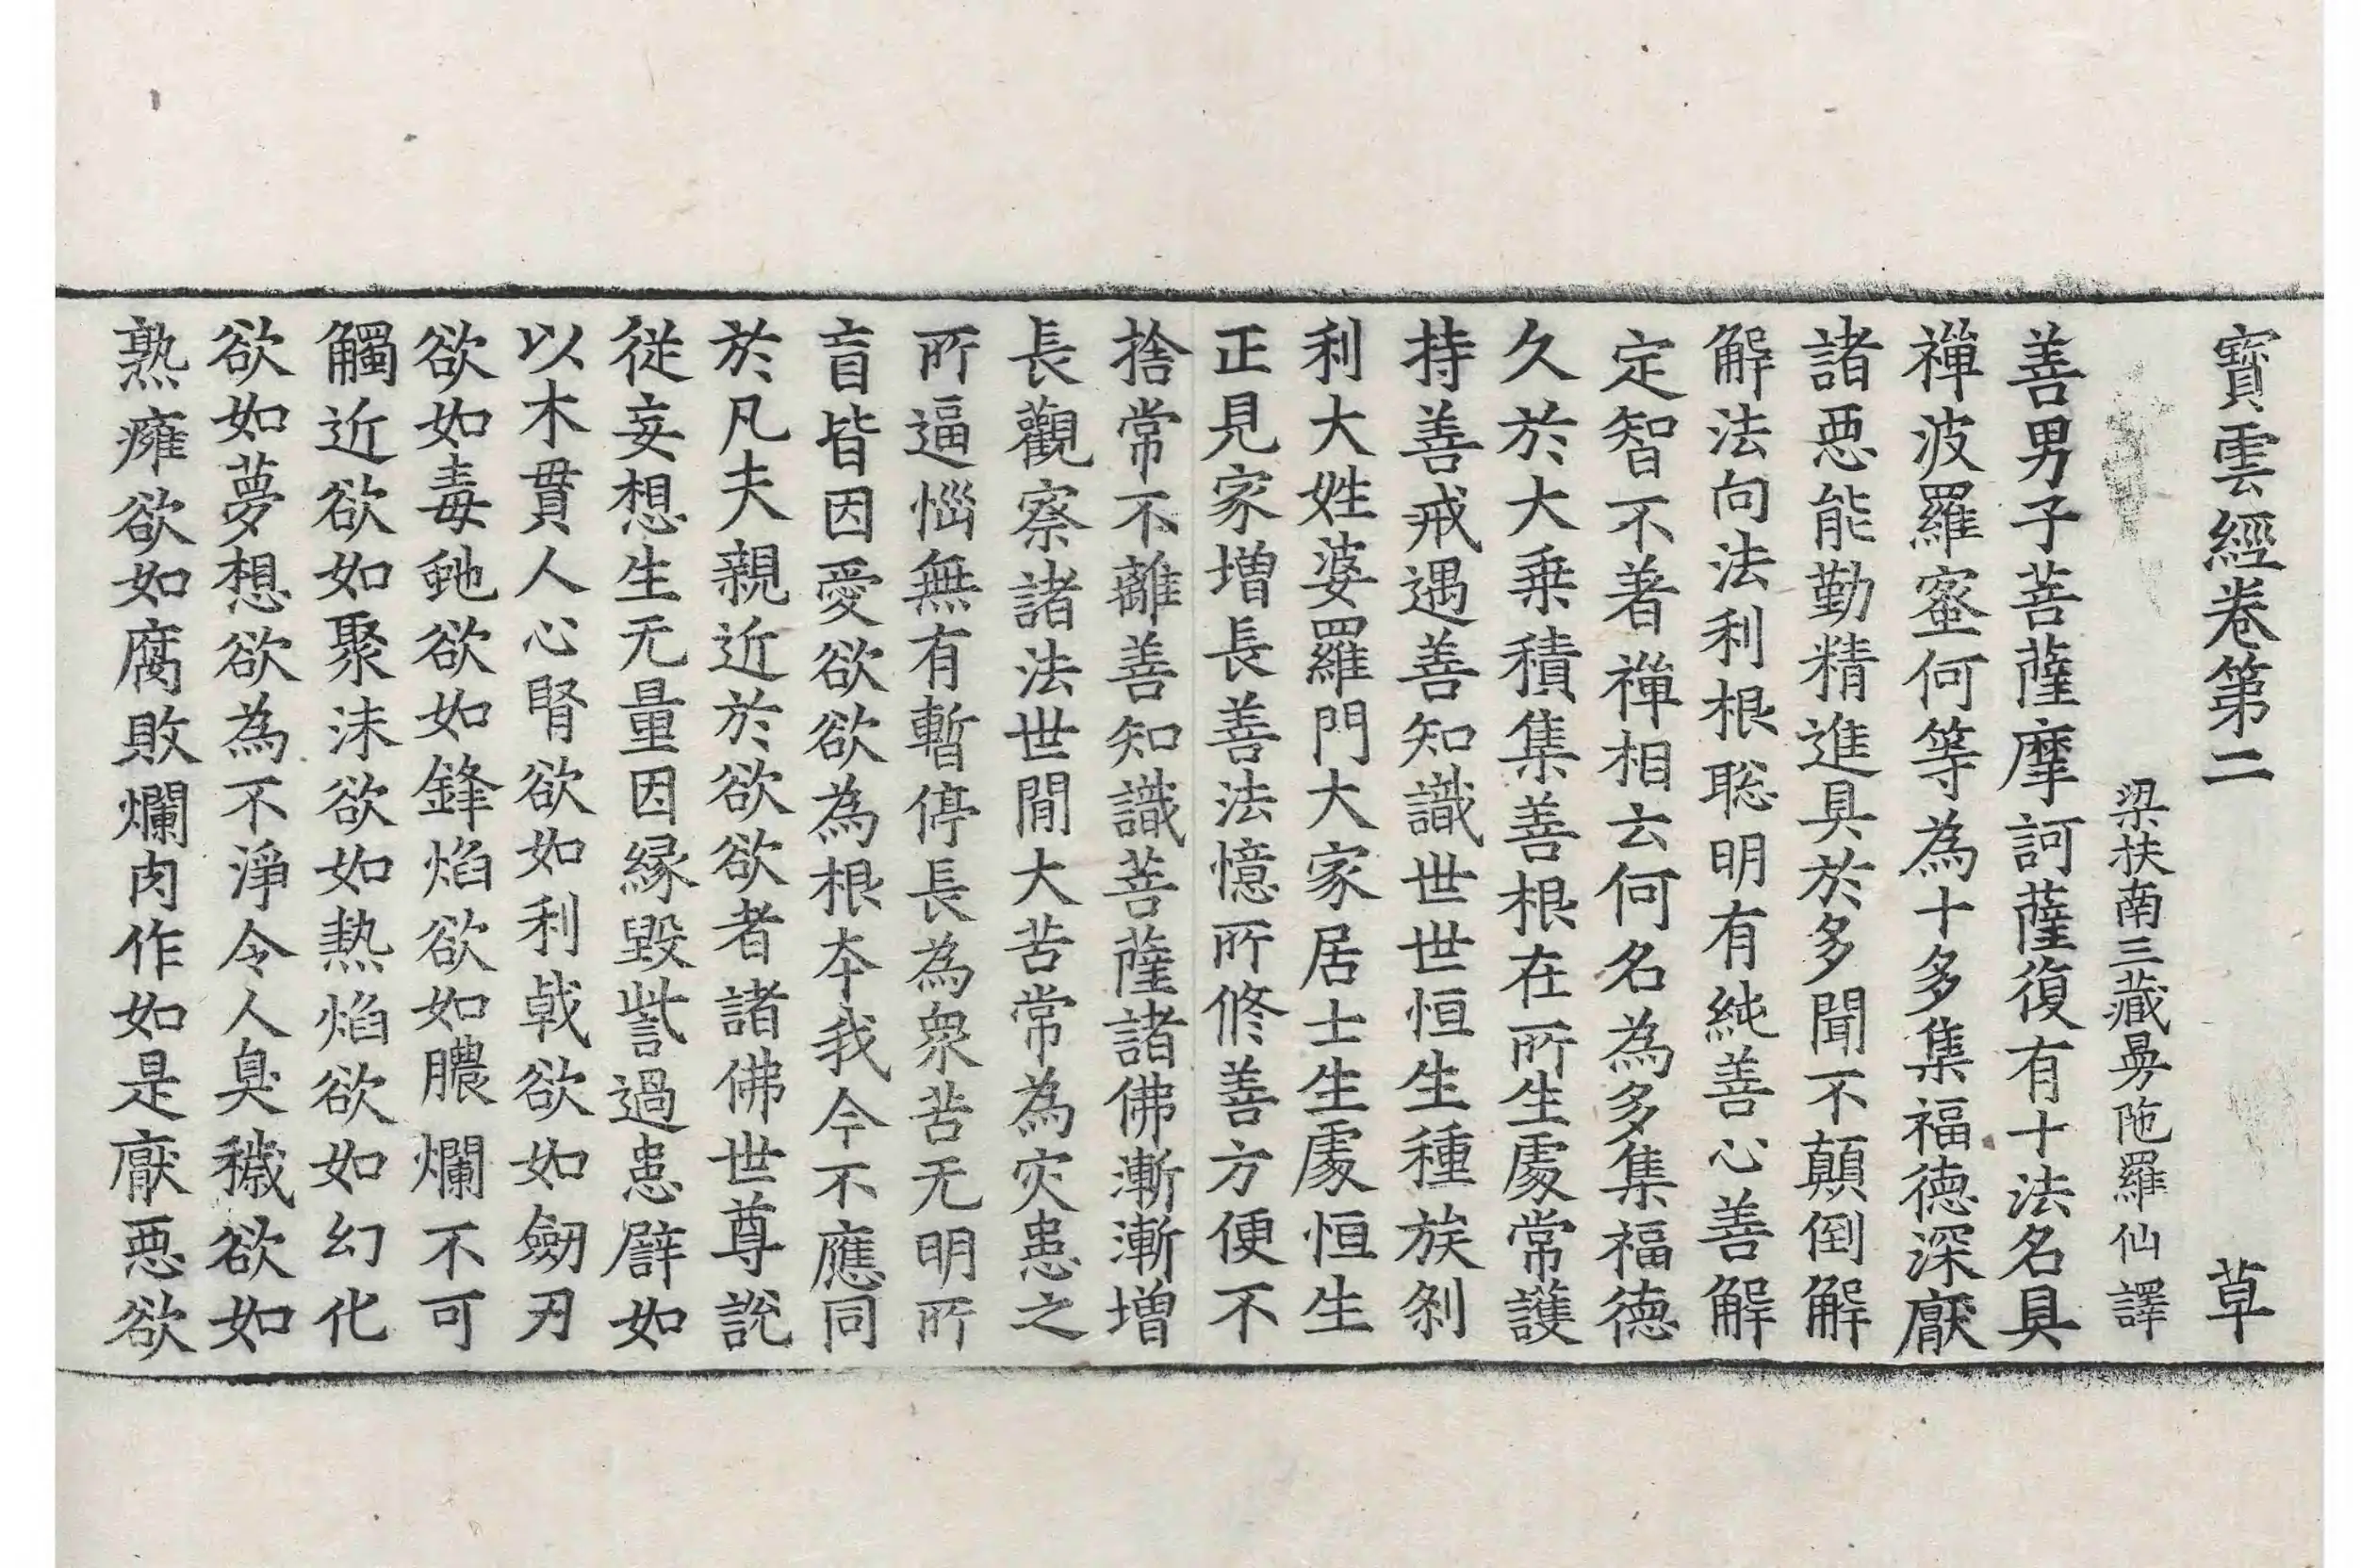 寶雲經卷第二 草
梁扶南三藏曼陁羅仙譯
善男子菩薩摩訶薩復有十法名具
禪波羅蜜何等為十多集福德深厭
諸惡能勤精進具於多聞不顛倒解
解法向法利根聦明有純善心善解
定智不著禪相云何名為多集福德
久於大乗積集善根在所生處常護
持善戒遇善知識世世恒生種族刹
利大姓婆羅門大家居士生處恒生
正見家増長善法憶所修善方便不
捨常不離善知識菩薩諸佛漸漸増
長觀察諸法世閒大苦常為灾患之
所逼惱無有暫停長為衆苦无明所
盲皆因愛欲欲為根夲我今不應同
於凡夫親近於欲欲者諸佛世尊說
從妄想生无量因縁毀訾過患譬如
以木貫人心腎欲如利戟欲如劒刃
欲如毒虵欲如鋒焰欲如膿爛不可
觸近欲如聚沫欲如熱焰欲如幻化
欲如夢想欲為不淨令人臭穢欲如
熟癰欲如腐敗爛肉作如是厭惡欲